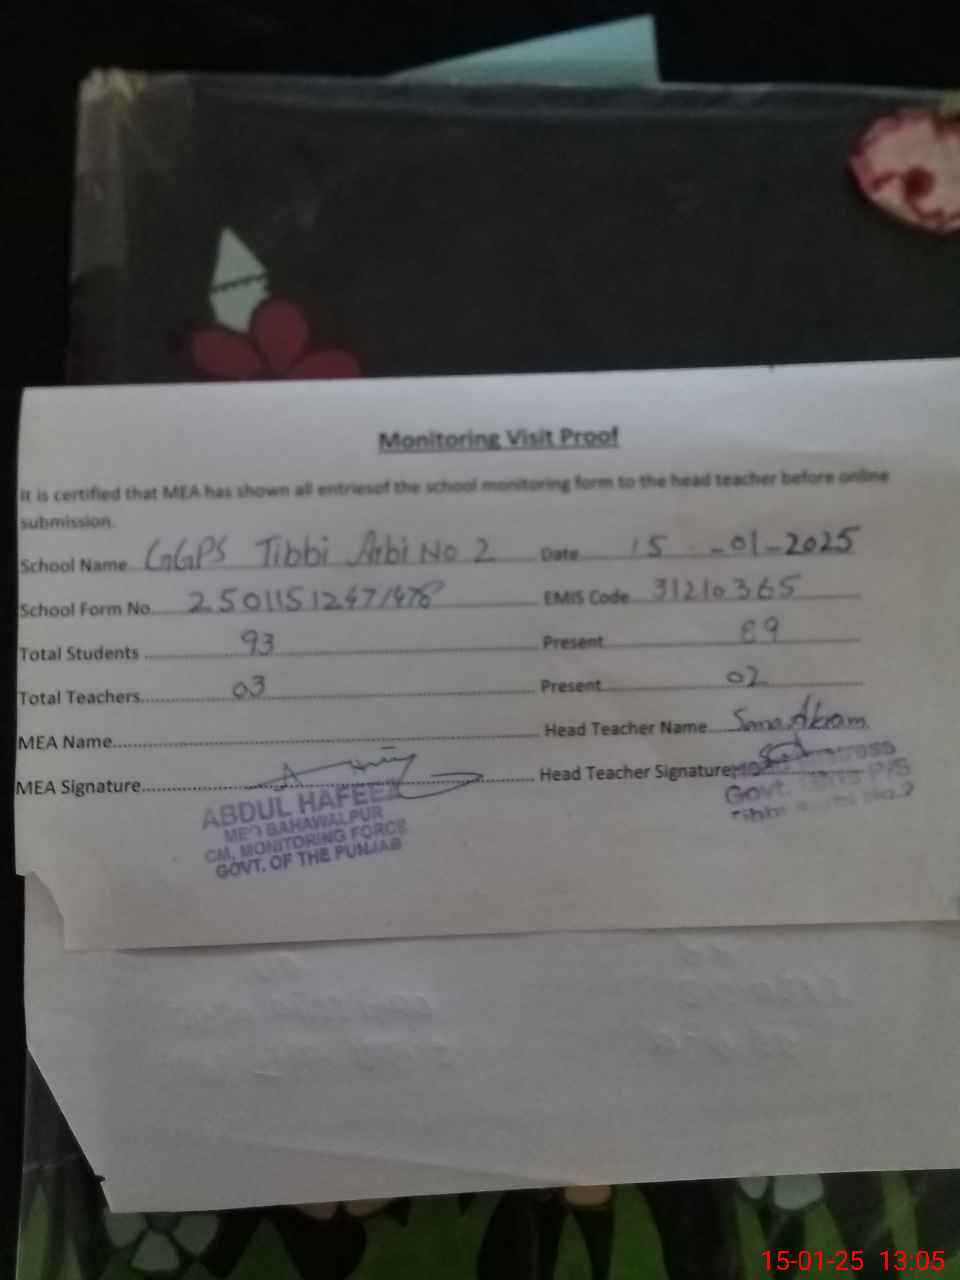 Monitoring Visit Proof
It is certified that MEA has shown all entriesof the school monitoring form to the head teacher before online
submission.
School Name GGPS Tibbi Arbi No 2 Date 15-01-2025
School Form No. 25011512471478 EMIS Code 31210365
Total Students 93 Present 89
Total Teachers 03 Present 02
MEA Name Head Teacher Name Sana Akram
MEA Signature Head Teacher Signature
ABDUL HAFEEZ
MEO BAHAWALPUR
CM, MONITORING FORCE
GOVT. OF THE PUNJAB
Govt. P/S
Tibbi No.2
15-01-25 13:05